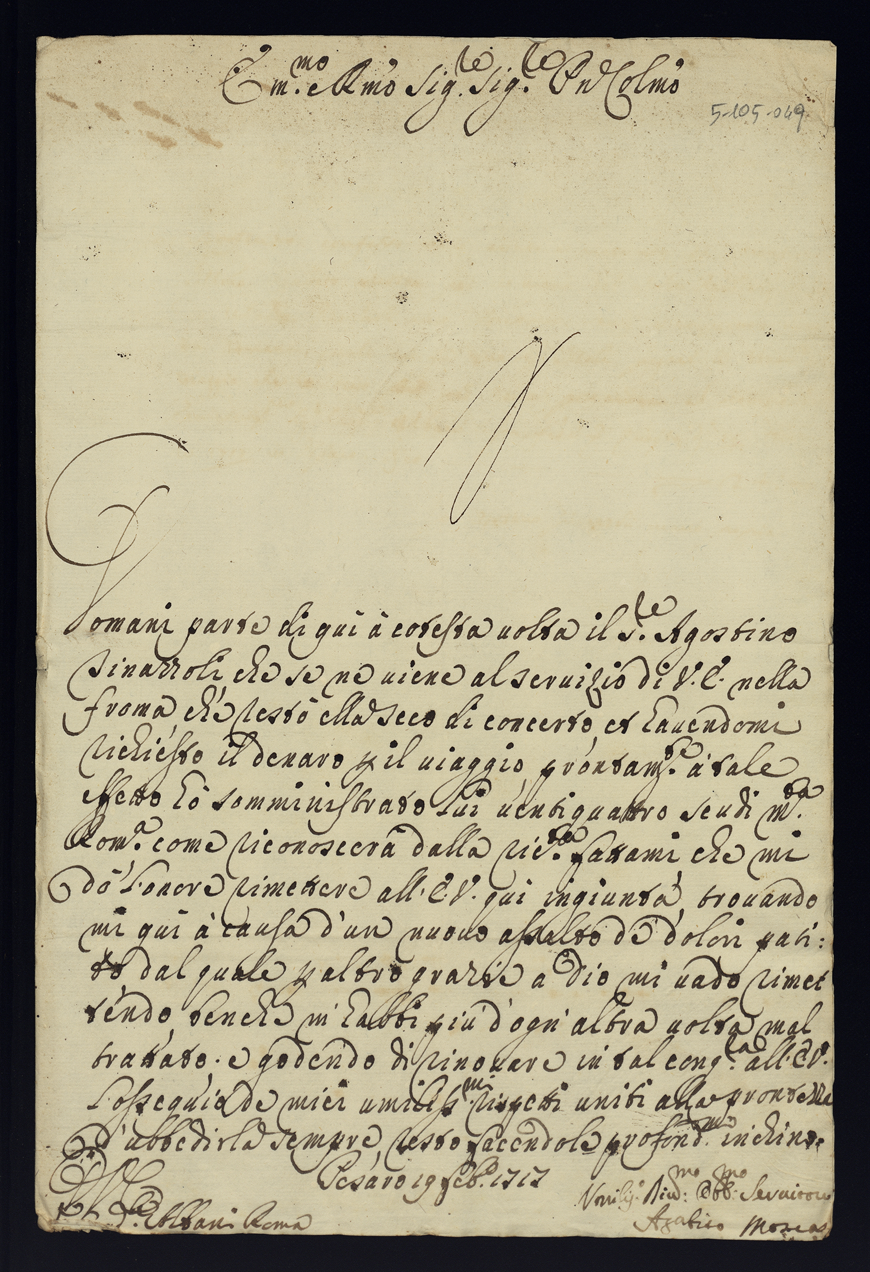 Em.mo e R.mo Sig.re Sig.re P.ne Col.mo
5-105-049
Domani parte di qui à cotesta uolta il S.re Agostino
che se ne uiene al seruizio di V. E. nella
froma che restò ella seco di concerto, et hauendomi
richiesto il denaro p il uiaggio, prontam.te à tale
effetto hò somministrato lui uentiquattro scudi m.ta
Rom.a come riconoscerà dalla ric.ta fattami che mi
dò l'onore rimettere all' E. V. qui ingiunta, trouando
mi qui à causa d'un nuouo assalto de dolori pati:
to dal quale p altro grazie a Dio mi uado rimet
tendo, benche m' habbi più d'ogn' altra uolta mal
trattato. e godendo di rinouare in tal cong.ra all' E. V.
l'ossequio de miei umiliss.mi rispetti uniti alla prontezza
d' ubbedirla sempre, resto facendole profond.mo inchino.
Pesaro 19 Feb.o 1717
Vmiliss. Diu.mo Obb.mo Seruitore
Albani Roma